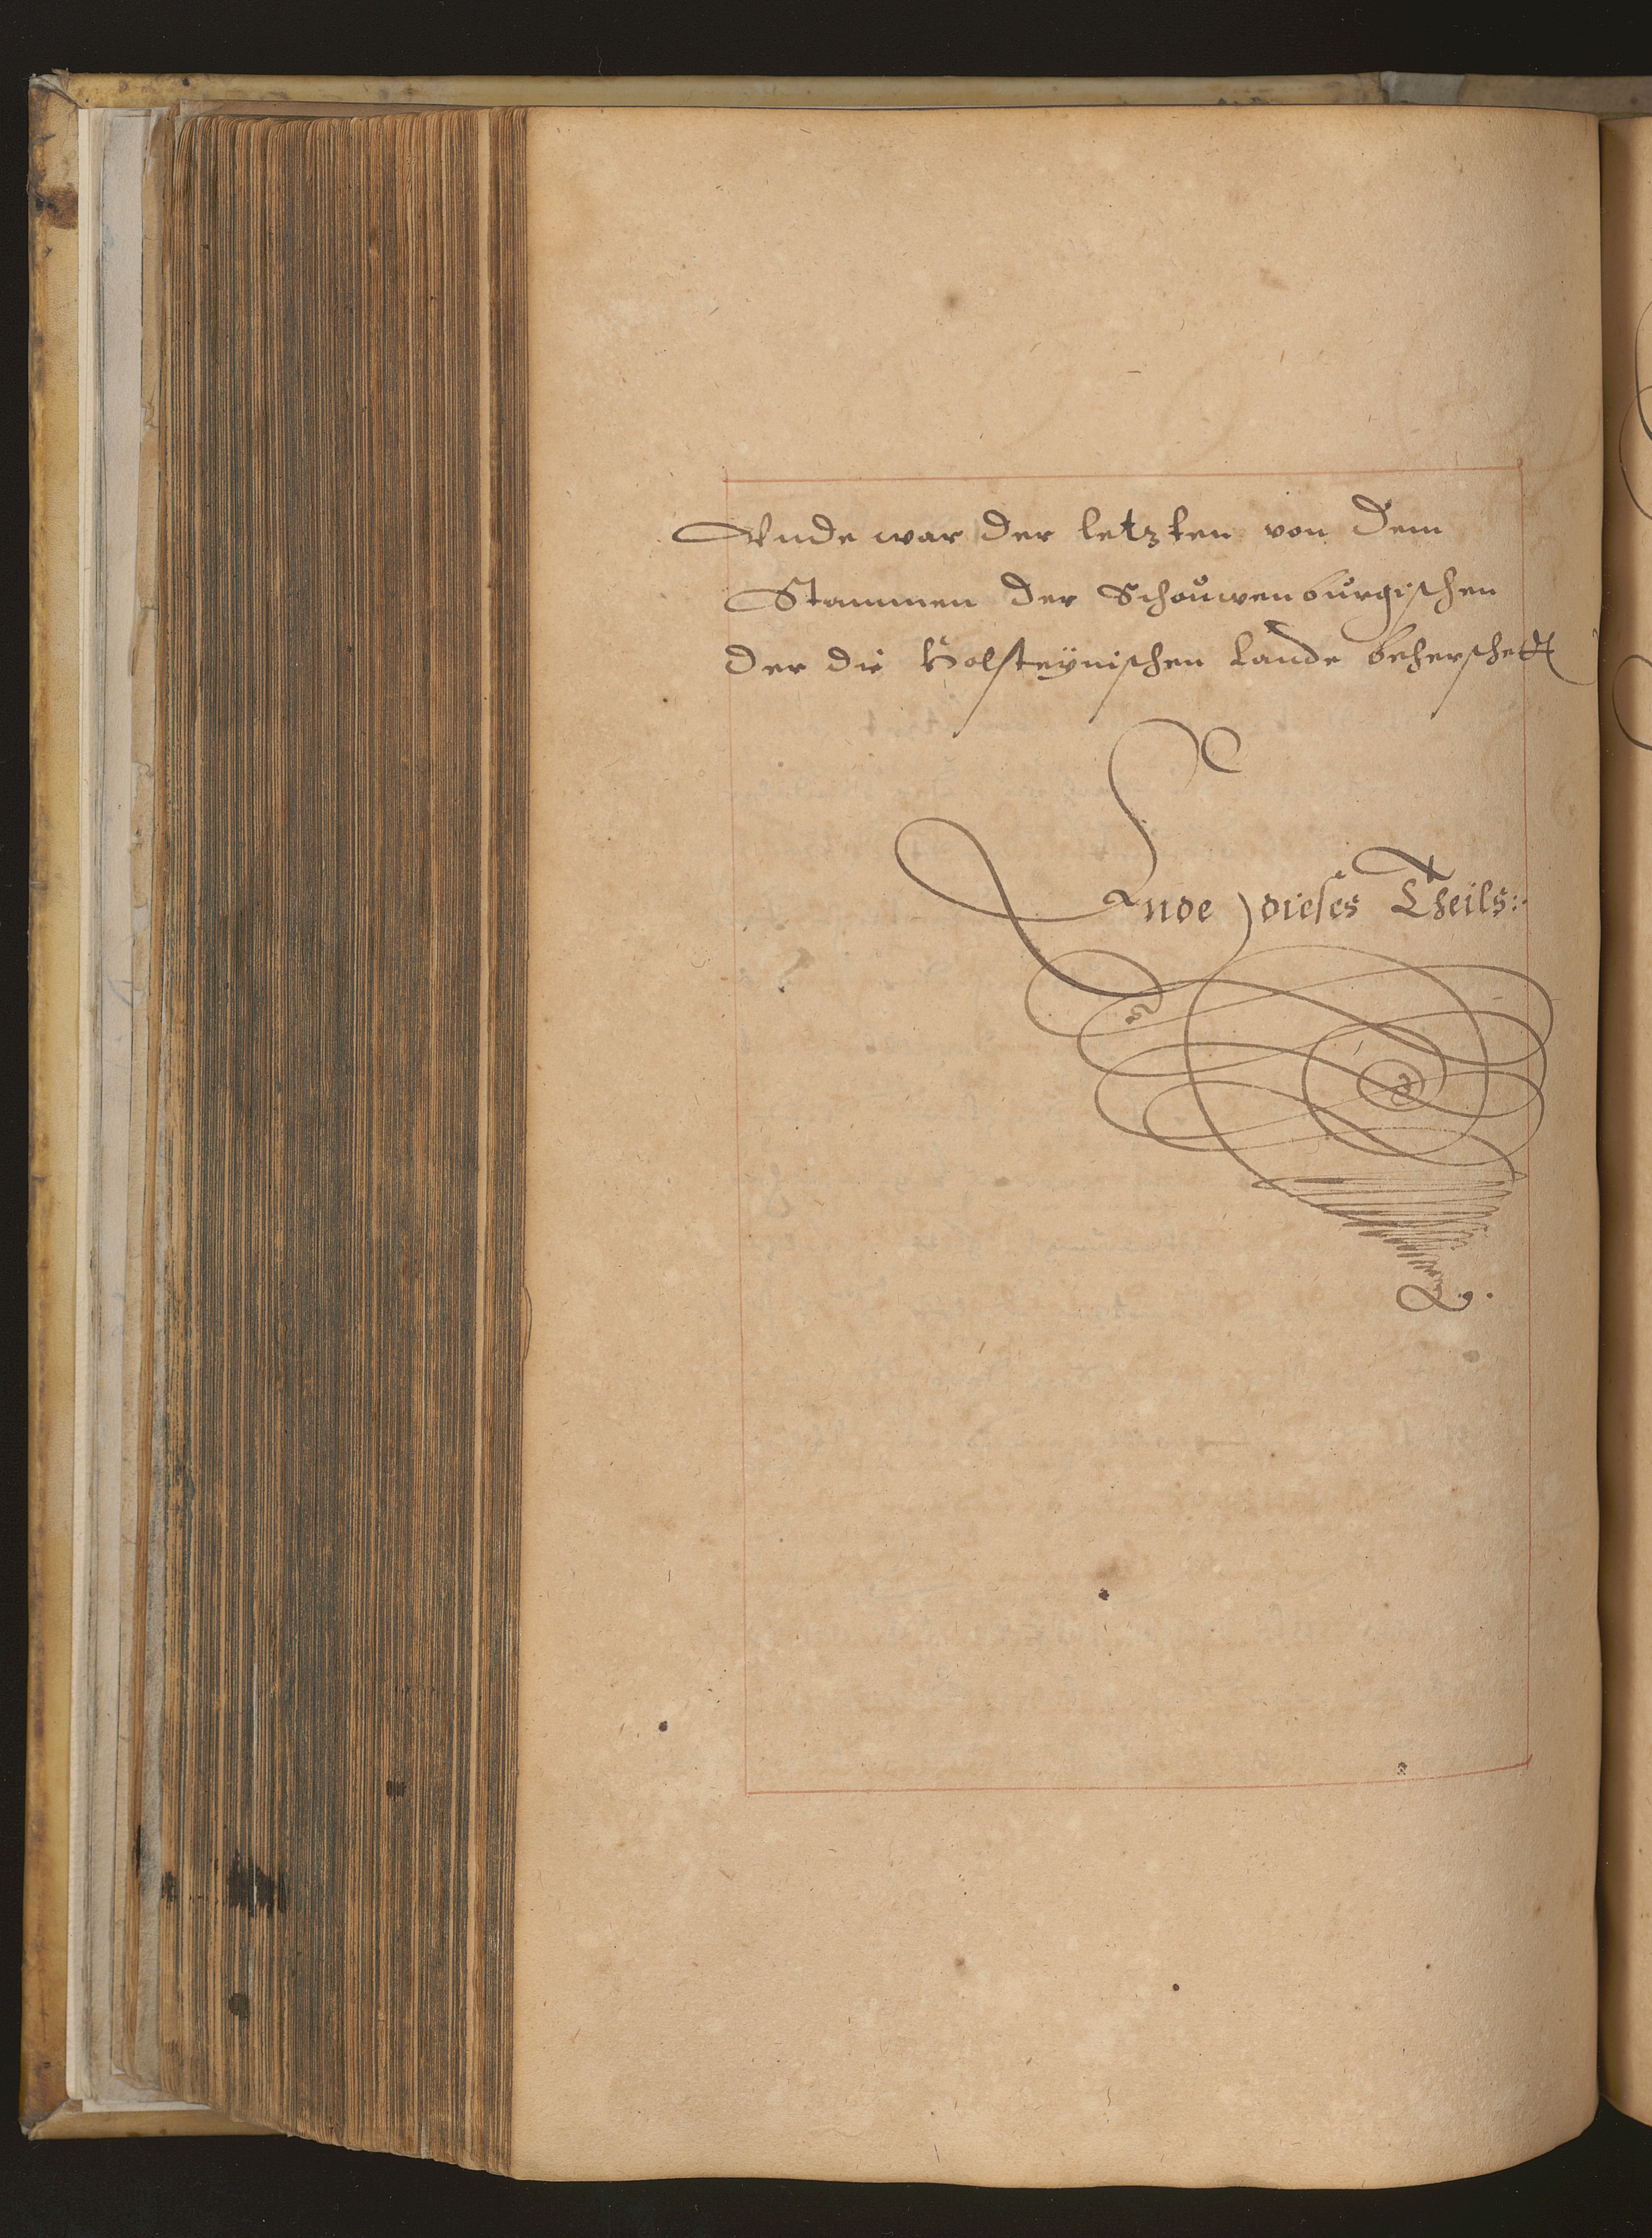 Vnde war der letzten von dem
Stammen der Schouwenburgischen
der die Holsteÿnischen Lande beherschett
Ende dieses Theils: